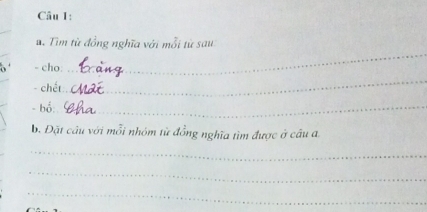 Câu 1:
a. Tìm từ đồng nghĩa với mỗi từ sau
- cho:
- chết: Mất
- bố: Cha
b. Đặt câu với mỗi nhóm từ đồng nghĩa tìm được ở câu a.